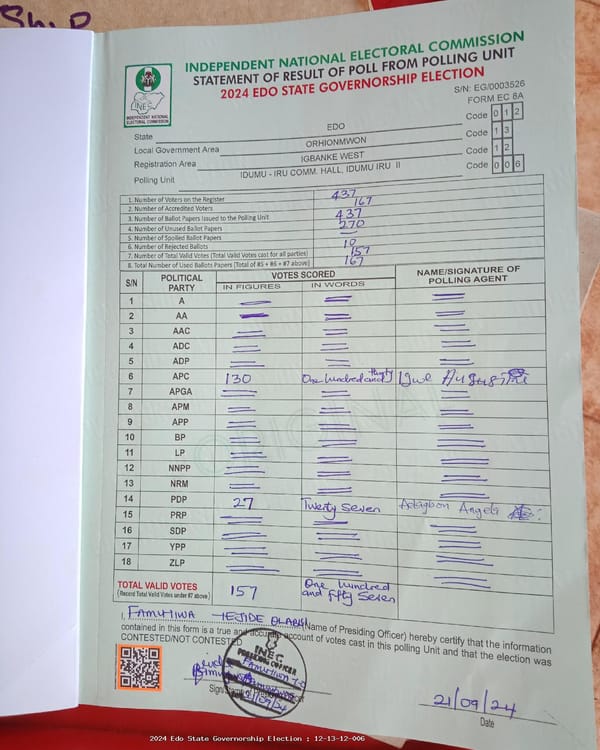 INDEPENDENT NATIONAL ELECTORAL COMMISSION
STATEMENT OF RESULT OF POLL FROM POLLING UNIT
2024 EDO STATE GOVERNORSHIP ELECTION
INEC
INDEPENDENT NATIONAL ELECTORAL COMMISSION
S/N: EG/0003526
FORM EC 8A
State EDO Code 0 1 2
Local Government Area ORHIONMWON Code 1 3
Registration Area IGBANKE WEST Code 1 2
Polling Unit IDUMU - IRU COMM. HALL, IDUMU IRU II Code 0 0 6
1. Number of Voters on the Register 437
2. Number of Accredited Voters 167
3. Number of Ballot Papers Issued to the Polling Unit 437
4. Number of Unused Ballot Papers 270
5. Number of Spoiled Ballot Papers —
6. Number of Rejected Ballots 10
7. Number of Total Valid Votes (Total Valid Votes cast for all parties) 157
8. Total Number of Used Ballots Papers (Total of #5 + #6 + #7 above) 167
S/N POLITICAL PARTY VOTES SCORED NAME/SIGNATURE OF POLLING AGENT
IN FIGURES IN WORDS
1 A
2 AA
3 AAC
4 ADC
5 ADP
6 APC 130 One hundred and thirty Igwe Augustine
7 APGA
8 APM
9 APP
10 BP
11 LP
12 NNPP
13 NRM
14 PDP 27 Twenty Seven Adagbon Angela
15 PRP
16 SDP
17 YPP
18 ZLP
TOTAL VALID VOTES 157 One hundred and fifty Seven
(Record Total Valid Votes under #7 above)
I, (Name of Presiding Officer) hereby certify that the information
contained in this form is a true and accurate account of votes cast in this polling Unit and that the election was
CONTESTED/NOT CONTESTED
INEC
PRESIDING OFFICER
21/09/24
21/09/24
Date
2024 Edo State Governorship Election : 12-13-12-006